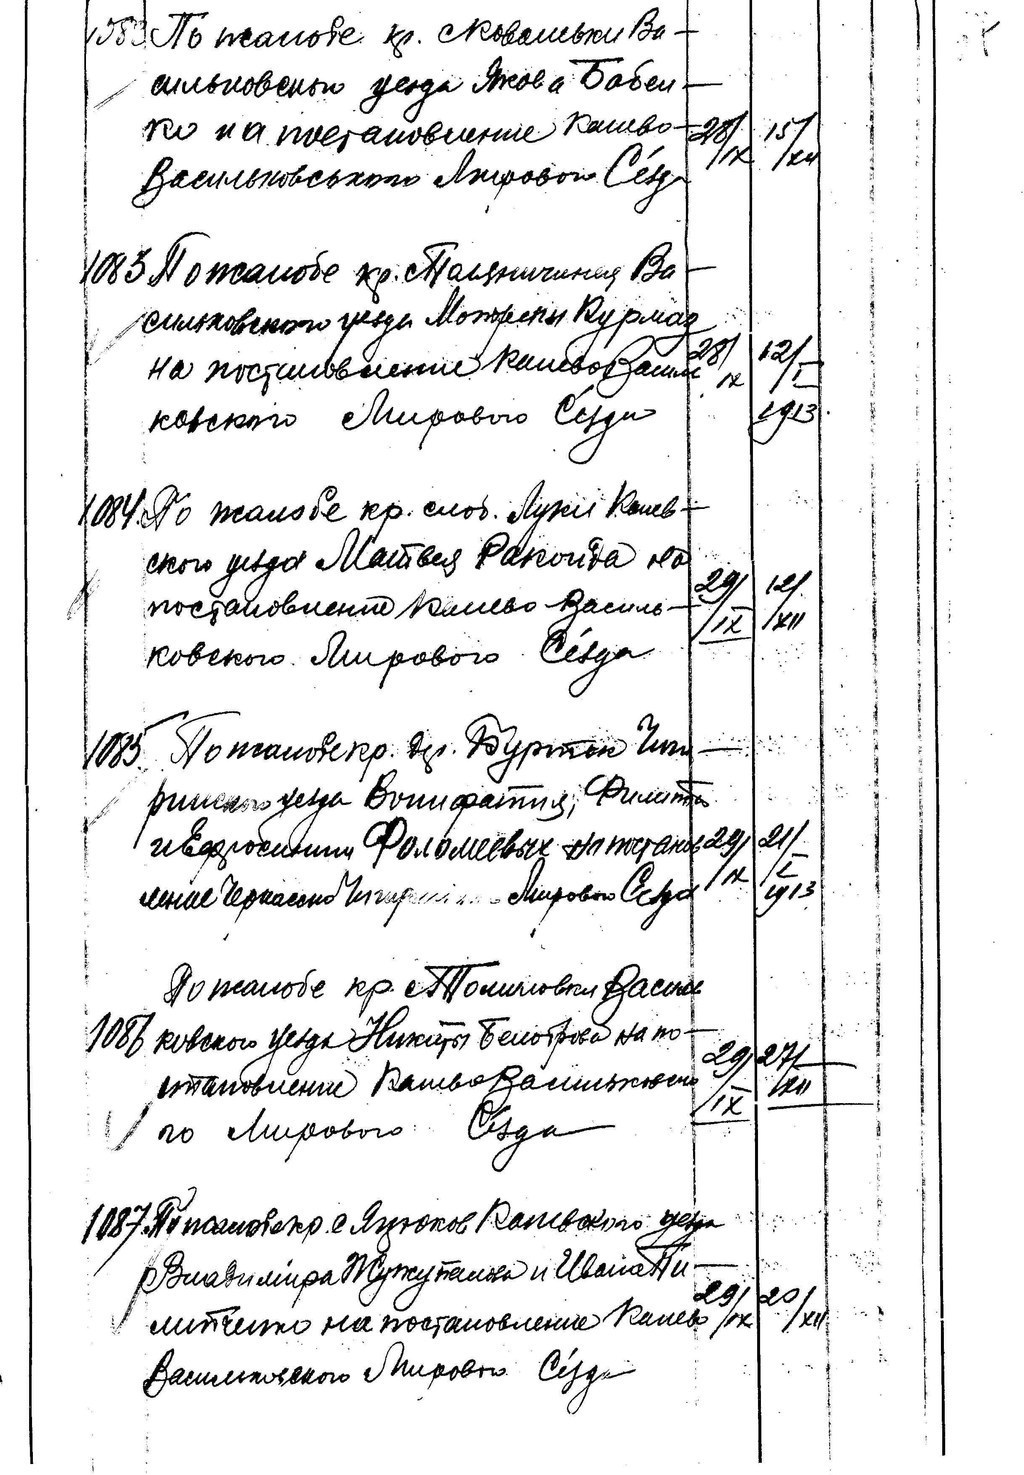 По жалобе кр. с Ковалевки Ва-
сильковского уезда Якова Бабен-
ко на постановление Канево-
Васильковського Мирового Сезда
28/IX 15/XII
1083 По жалобе кр. с Ва-
сильковского уезда Мотрены Курмаз
на постановление Канево Василь
ковского Мирового Сезда
28/IX 12/I 1913.
1084. По жалобе кр. слоб. Луки Канев-
ского уезда Матвея на
постановление Канево Василь-
ковского Мирового Сезда
29/IX 12/XII
1085 По жалобе кр. дер. Чиги-
ринского уезда Вонифатия, Филиппа
и Ефросинии Фоломеевых на постанов
ление Черкасско Чигиринского Мирового Сезда
29/IX 21/I 1913
По жалобе кр. с Василь
1086 ковского уезда Никиты на по-
становление Канево Васильковско
го Мирового Сезда
29/IX 27/XII
1087. По жалобе кр. с Яцюков Каневского уезда
Владимира и Ивана Пи-
липченко на постановление Канево
Васильковского Мирового Сезда
29/IX 20/XII